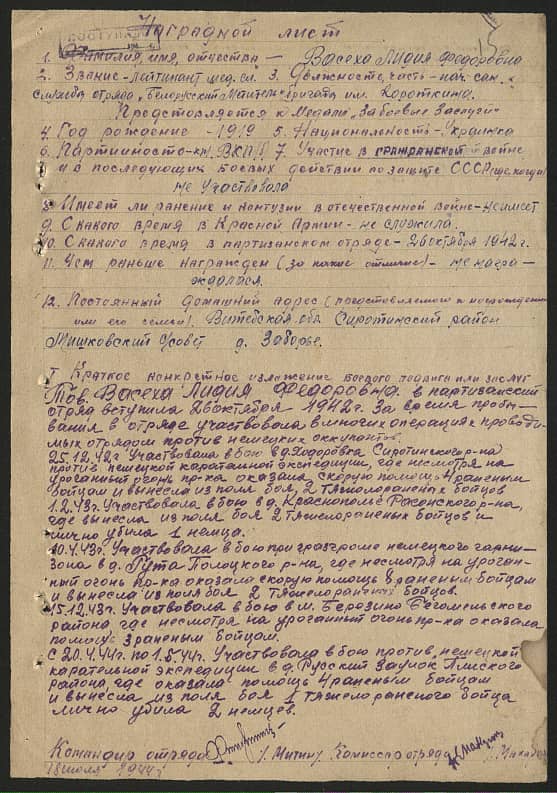 Наградной лист
1. Фамилия, имя, отчество — Васеха Лидия Федоровна
2. Звание - лейтинант мед. сл. 3. Должность, часть - нач. сан.
служба отряда, "Белорусский Мститель" бригата им. Короткина.
Предстовляется к Медали "За боевые Заслуги"
4. Год рождение - 1919 5. Национальность - Украинка
6. Партийность - ВКП/б 7. Участие в гражданской войне
и в последующих боевых действии по защите СССР (где, когда)
не Участвовала
8. Имеет ли ранение и контузии в отечественной войне - не имеет
9. С какого время в Красной Армии - не служила.
10. С какого время в партизанском отряде - 26 октября 1942 г.
11. Чем раньше награжден (за какие отличие) - не награ-
ждалася.
12. Постоянный домашний адрес (
или его семьи). Витебская обл. Сиротинский район
Мишковский с/совет д. Заборье.
I Краткое конкретное изложение боевого подвига или заслуг
Тов. Васеха Лидия Федоровна в партизанский
отряд вступила 26 октября 1942 г. За время пребы-
вания в отряде участвовала в многих операциях проводи-
мых отрядом против немецких оккупантов.
25.12.42 г Участвовала в бою в д. Сиротинского р-на
против немецкой карательной экспедиции, где несмотря на
ураганный огонь пр-ка оказала скорую помощь 4 раненым
бойцам и вынесла из поля боя, 2 тяжелораненых бойцов
1.2.43 г. Участвовала в бою в д. Краснополье Расонского р-на,
где вынесла из поля боя 2 тяжелораненых бойцов и
лично убила 1 немца.
10.4.43 г. Участвовала в бою при разгроме немецкого гарни-
зона в д. Рута Полоцкого р-на, где несмотря на ураган-
ный огонь пр-ка оказала скорую помощь 8 раненым бойцам
и вынесла из поля боя 2 тяжелораненых бойцов.
15.12.43 г. Участвовала в бою в м. Березино Бегомльского
района, где несмотря на ураганный огонь пр-ка оказала
помощь 3 раненым бойцам.
С 20.4.44 г. по 1.5.44 г. Участвовала в бою против немецкой
карательной экспедиции в д. Русский Заулок
района, где оказала помощь 4 раненым бойцам
и вынесла из поля боя 1 тяжелораненого бойца
лично убила 2 немцев.
Командир отряда / Митин / Комиссар отряда
18 июля 1944 г.